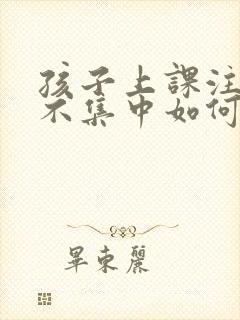 孩子上課注
不集中如何
畢東麗